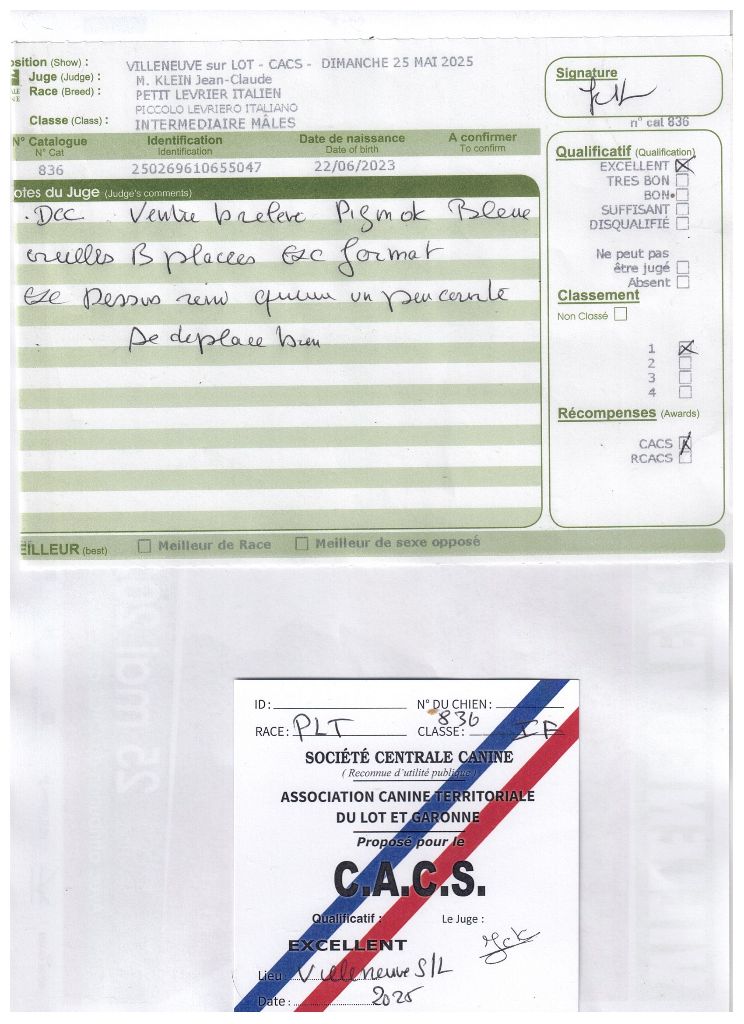 osition (Show) : VILLENEUVE sur LOT - CACS - DIMANCHE 25 MAI 2025
Juge (Judge) : M. KLEIN Jean-Claude
Race (Breed) : PETIT LEVRIER ITALIEN
PICCOLO LEVRIERO ITALIANO
Classe (Class) : INTERMEDIAIRE MÂLES
Signature
n° cal 836
N° Catalogue Identification Date de naissance A confirmer
N° Cat Identification Date of birth To confirm
836 250269610655047 22/06/2023
otes du Juge (Judge's comments)
Dcc Ventre breleve Pigmok Bleue
oreilles B placees exc format
exc Dessus rein queue un peu
Se deplace bien
Qualificatif (Qualification)
EXCELLENT
TRES BON
BON
SUFFISANT
DISQUALIFIÉ
Ne peut pas
être jugé
Absent
Classement
Non Classé
1
2
3
4
Récompenses (Awards)
CACS
RCACS
EILLEUR (best) Meilleur de Race Meilleur de sexe opposé
ID : N° DU CHIEN :
836
RACE : PLT CLASSE : IF
SOCIÉTÉ CENTRALE CANINE
( Reconnue d'utilité publique )
ASSOCIATION CANINE TERRITORIALE
DU LOT ET GARONNE
Proposé pour le
C.A.C.S.
Qualificatif : Le Juge :
EXCELLENT
Lieu : Villeneuve S/L
Date : 2025